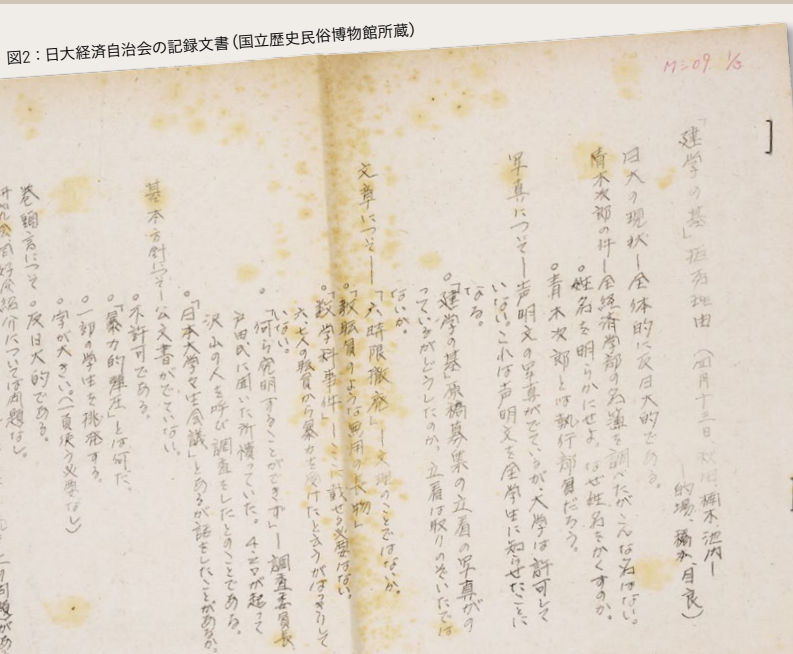 図2：日大経済自治会の記録文書(国立歴史民俗博物館所蔵)
M=09 1/3
「建学の基」拒否理由 (四月十三日 秋田、楠木、池内ー
的場、橋本、月良)
日大の現状ー全体的に反日大的である。
青木次郎の件ー全経済学部の名簿を調べたが、こんな名はない。
姓名を明らかにせよ。なぜ姓名をかくすのか。
○青木次郎とは執行部員だろう。
写真についてー声明文の写真がでているが、大学は許可して
いない。これは声明文を全学生に知らせたことに
なる。
○「建学の基」原稿募集の立看の写真がの
っているがどうしたのか。立看は取りのぞいたでは
ないか。
文章についてー「六時限撤廃」ー文理のことではないか。
○「教職員のような無用の長物」
○「数学科事件」ーここに載せる必要はない。
六七人の職員から暴力を受けたと云うがはっきりして
いない。
「何ら発明することができず」ー調査委員長
戸田氏に聞いた所憤っていた。4・20が起って
沢山の人を呼び調査をしたとのことである。
○「日本大学学生会議」とあるが話をしたことがあるか。
基本方針についてー公文書がでていない。
○不許可である。
○「暴力的弾圧」とは何だ。
○一部の学生を挑発する。
○字が大きい。(一頁使う必要なし)
巻頭言について ○反日大的である。
については問題なし。